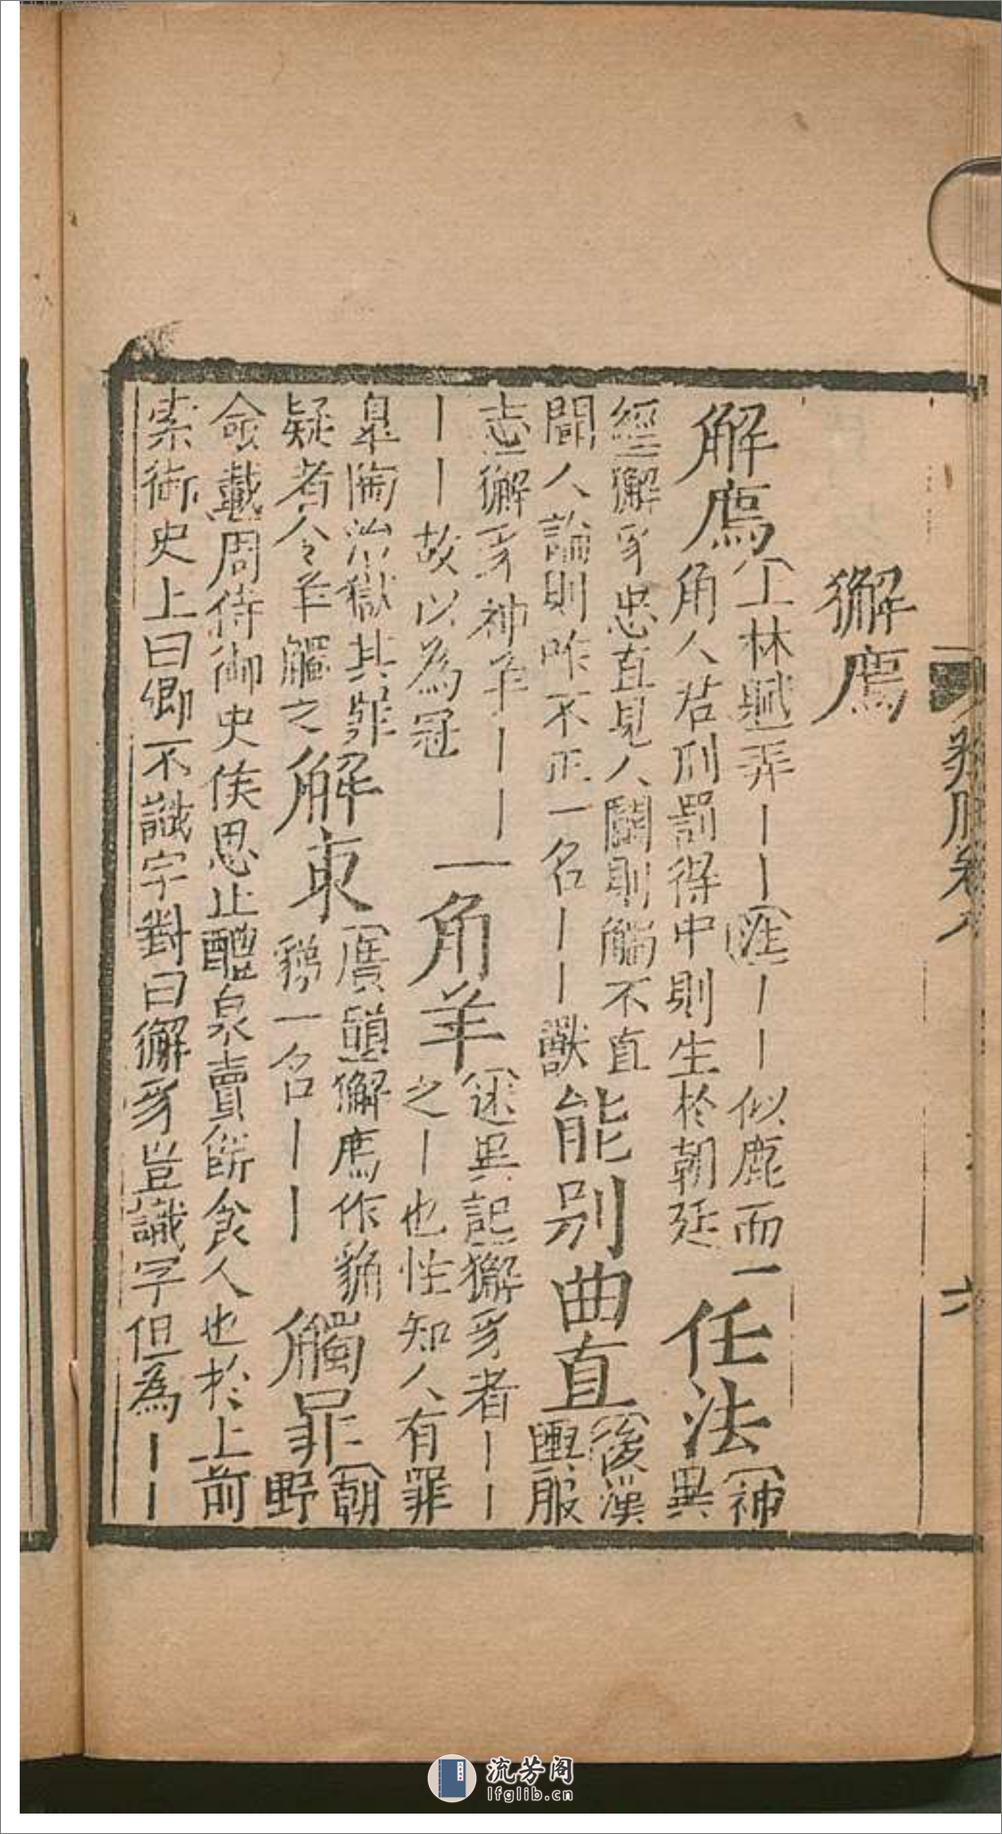 獬廌
解廌
(上林賦弄——(注——似鹿而一
角人君刑罰得中則生於朝廷
任法
(神
異
經獬豸忠直見人鬪則觸不直
聞人論則咋不正一名——獸
能別曲直
(後漢
輿服
志獬豸神羊——
——故以為冠
一角羊
(述異記獬豸者——
之—也性知人有罪
臯陶治獄其罪
疑者令羊觸之
解
(廣韻獬廌作
一名——
觸罪
(朝
野
僉載周侍御史侯思止醴泉賣餅食人也於上前
索御史上曰卿不識字對曰獬豸豈識字但為——
卷
六
流芳阁
lfglib.cn